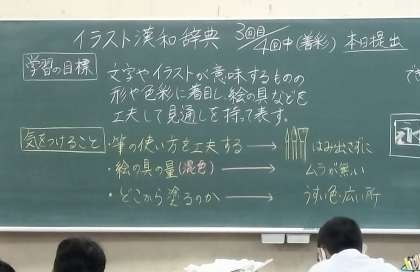 イラスト漢和辞典 3回目/4回中(着彩) 本日提出
学習の目標
文字やイラストが意味するものの
形や色彩に着目し絵の具などを
工夫して見通しを持って表す。
気をつけること
・筆の使い方を工夫する → はみ出さずに
・絵の具の量(混色) → ムラが無い
・どこから塗るのか → うすい色・広い所